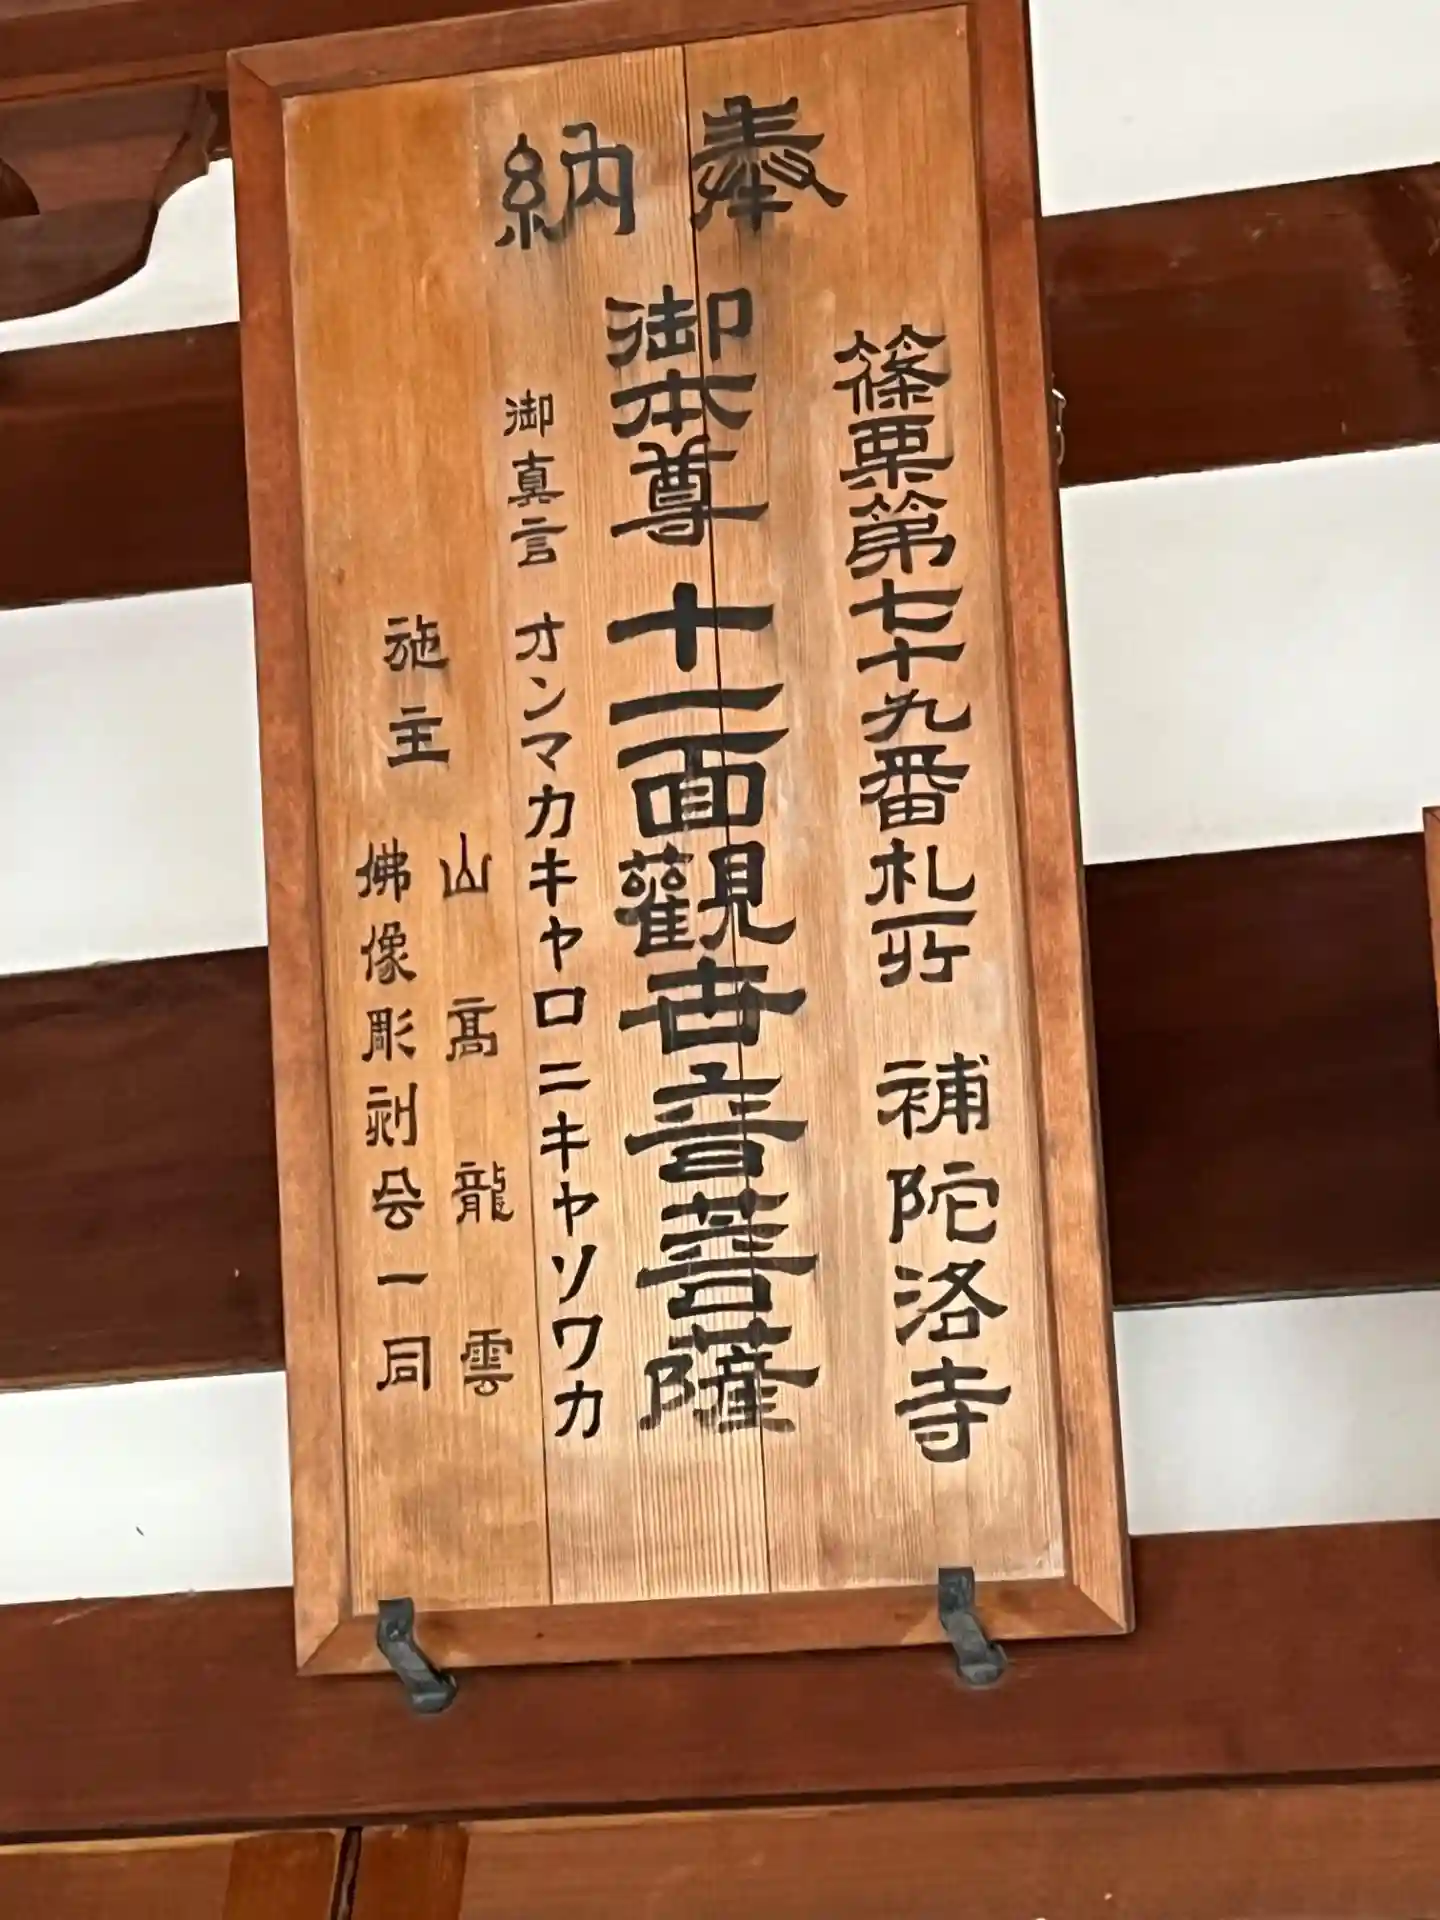 奉納
篠栗第七十九番札所 補陀洛寺
御本尊 十一面観世音菩薩
御真言 オンマカキャロニキャソワカ
施主
山高龍雲
佛像彫刻会一同